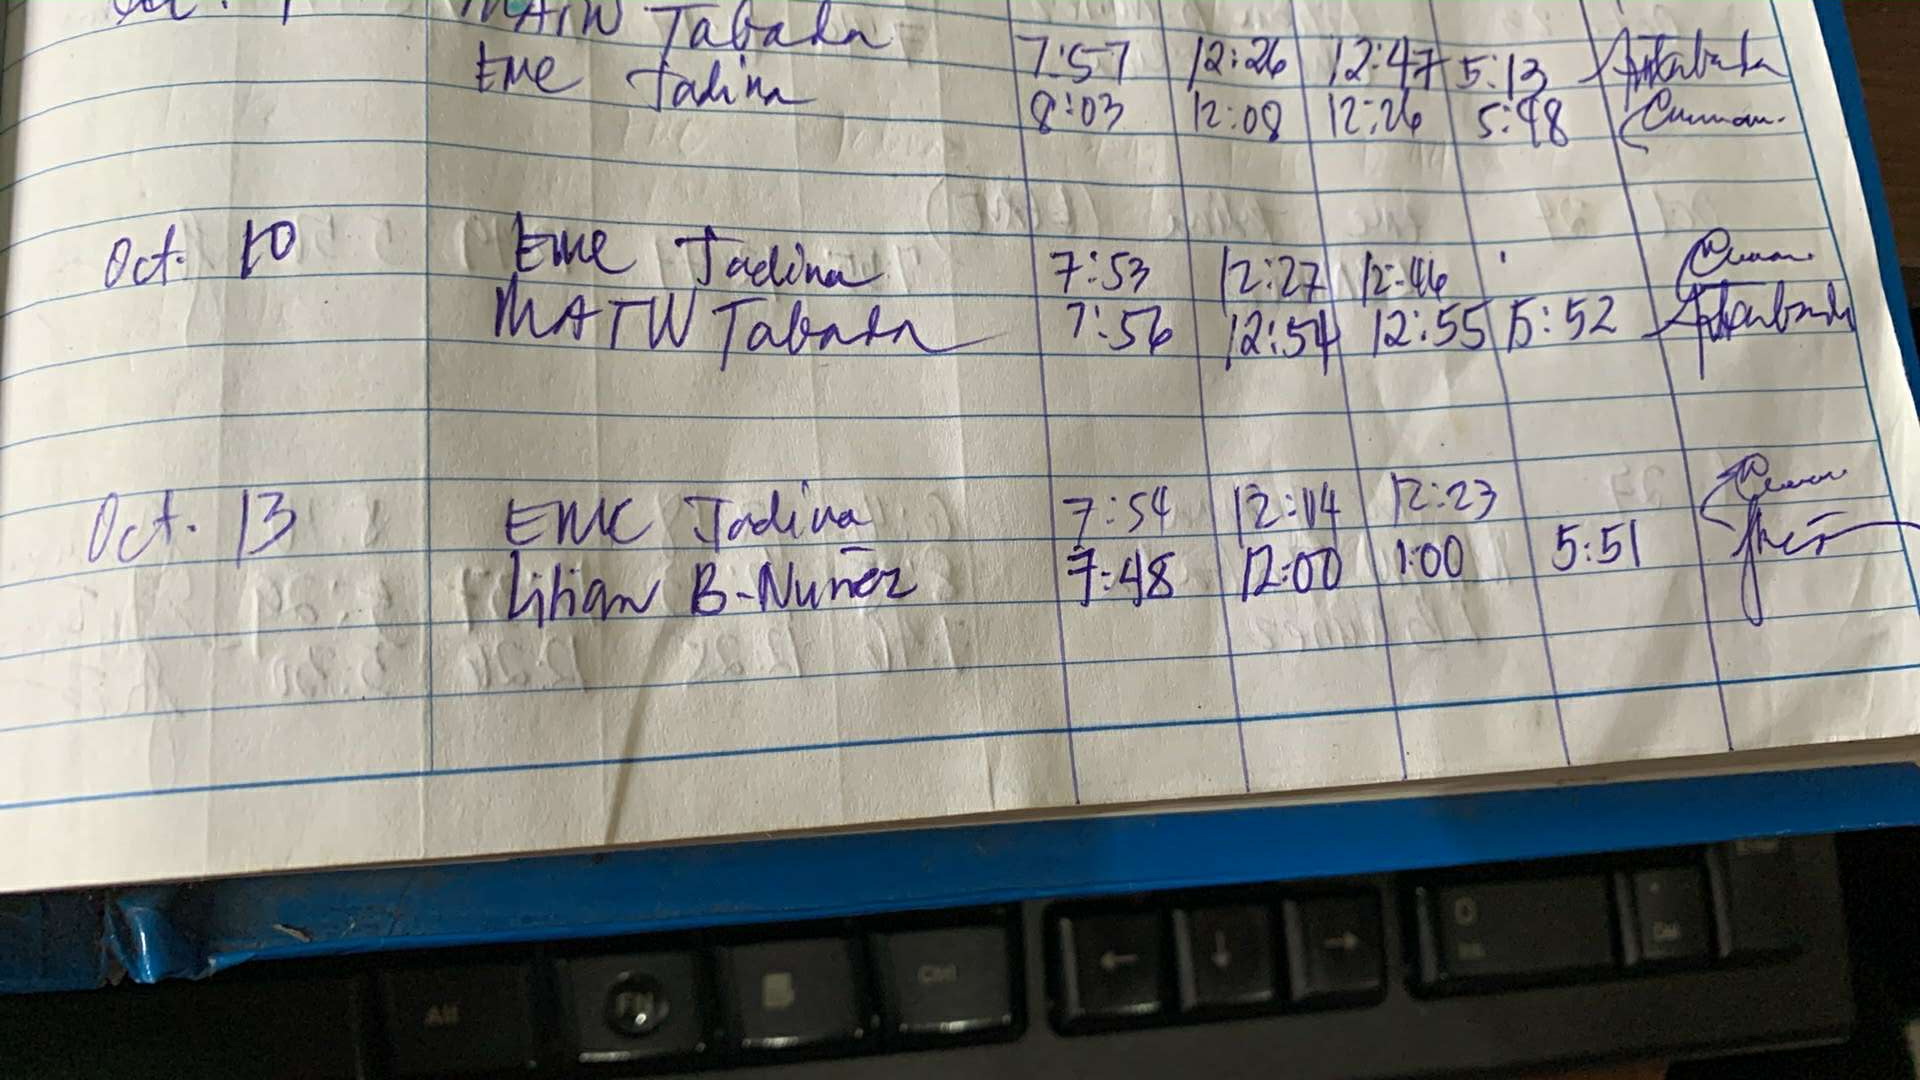 MATW Tabada 7:57 12:26 12:47 5:13
EMC Jadina 8:03 12:08 12:26 5:48
Oct. 10 EMC Jadina 7:53 12:27 12:46
MATW Tabada 7:56 12:54 12:55 5:52
Oct. 13 EMC Jadina 7:54 12:14 12:23
Lilian B. Nuñez 7:48 12:00 1:00 5:51
Alt FN Ctrl ← ↓ → 0